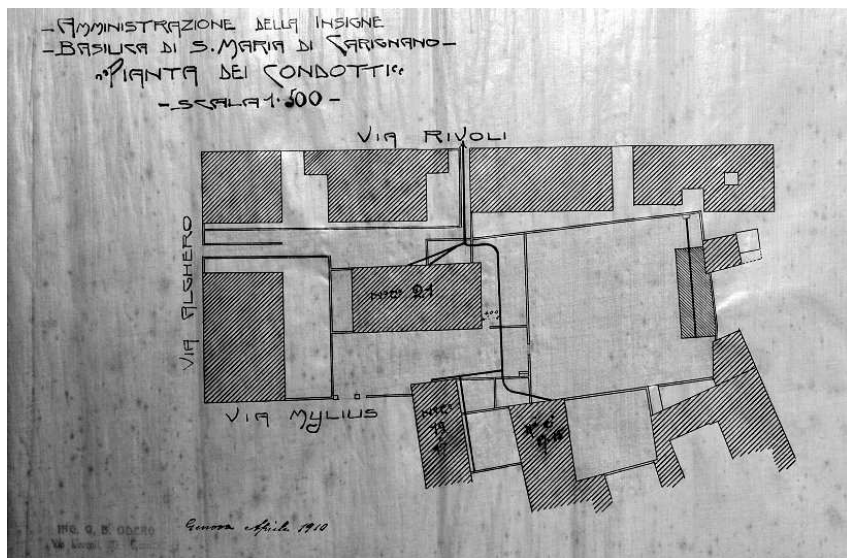 -AMMINISTRAZIONE DELLA INSIGNE
-BASILICA DI S. MARIA DI CARIGNANO-
"PIANTA DEI CONDOTTI"
-SCALA 1:500-
VIA RIVOLI
VIA ALGHERO
21
VIA MYLIUS
19
ING. G. B. ODERO
Genova Aprile 1910